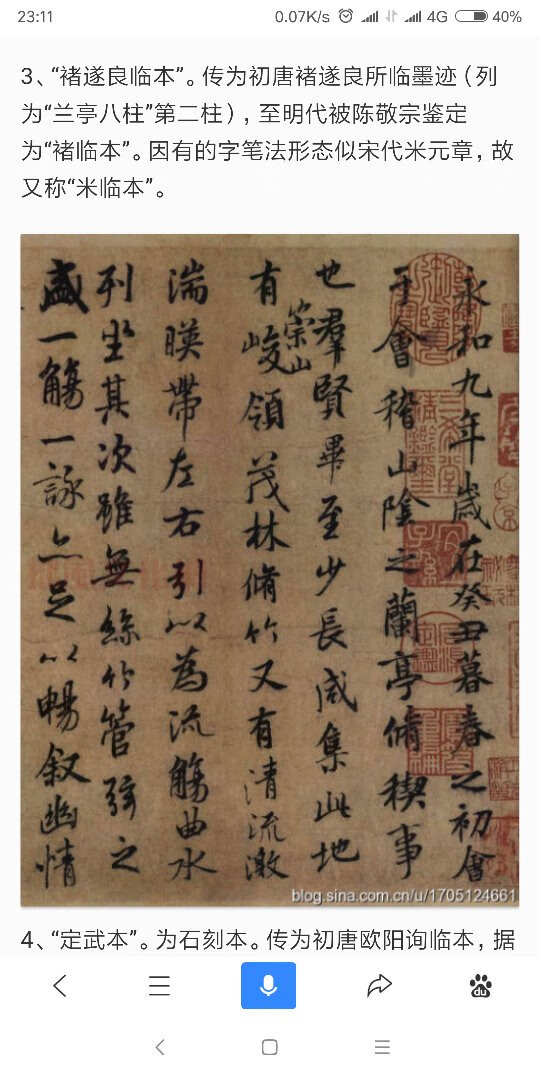 23:11 0.07K/s 4G 40%
3、“褚遂良临本”。传为初唐褚遂良所临墨迹（列
为“兰亭八柱”第二柱），至明代被陈敬宗鉴定
为“褚临本”。因有的字笔法形态似宋代米元章，故
又称“米临本”。
永和九年歲在癸丑暮春之初會
于會稽山陰之蘭亭脩稧事
也羣賢畢至少長咸集此地
有崇山峻領茂林脩竹又有清流激
湍暎帶左右引以為流觴曲水
列坐其次雖無絲竹管弦之
盛一觴一詠亦足以暢叙幽情
blog.sina.com.cn/u/1705124661
4、“定武本”。为石刻本。传为初唐欧阳询临本，据
du